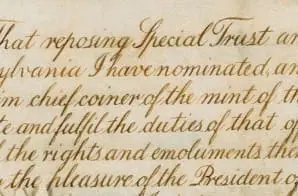 That reposing Special Trust an
sylvania I have nominated, an
im chief coiner of the mint of th
te and fulfil the duties of that of
the rights and emoluments the
the pleasure of the President o